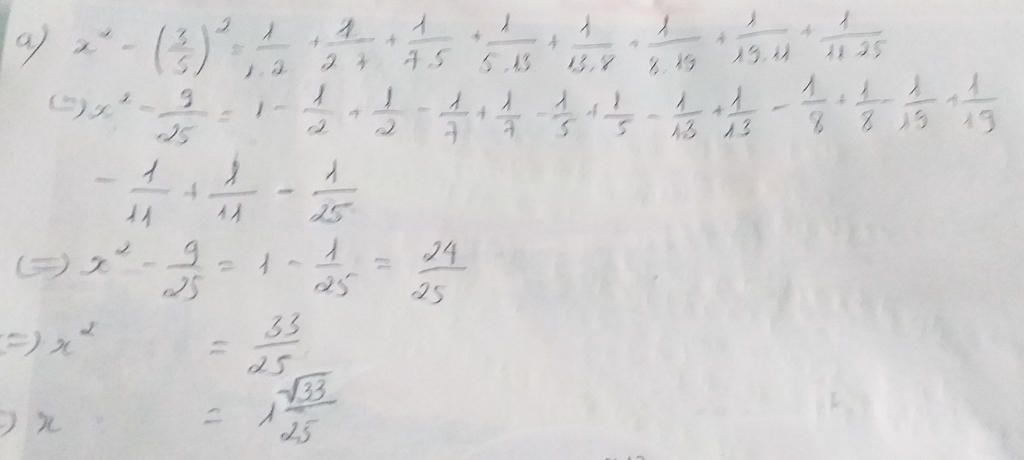 a) x² - (3/5)² = 1/1.2 + 1/2.7 + 1/7.5 + 1/5.13 + 1/13.8 + 1/8.19 + 1/19.11 + 1/11.25
(=) x² - 9/25 = 1 - 1/2 + 1/2 - 1/7 + 1/7 - 1/5 + 1/5 - 1/13 + 1/13 - 1/8 + 1/8 - 1/19 + 1/19
- 1/11 + 1/11 - 1/25
(=) x² - 9/25 = 1 - 1/25 = 24/25
(=) x² = 33/25
=) x = 1 √33/25